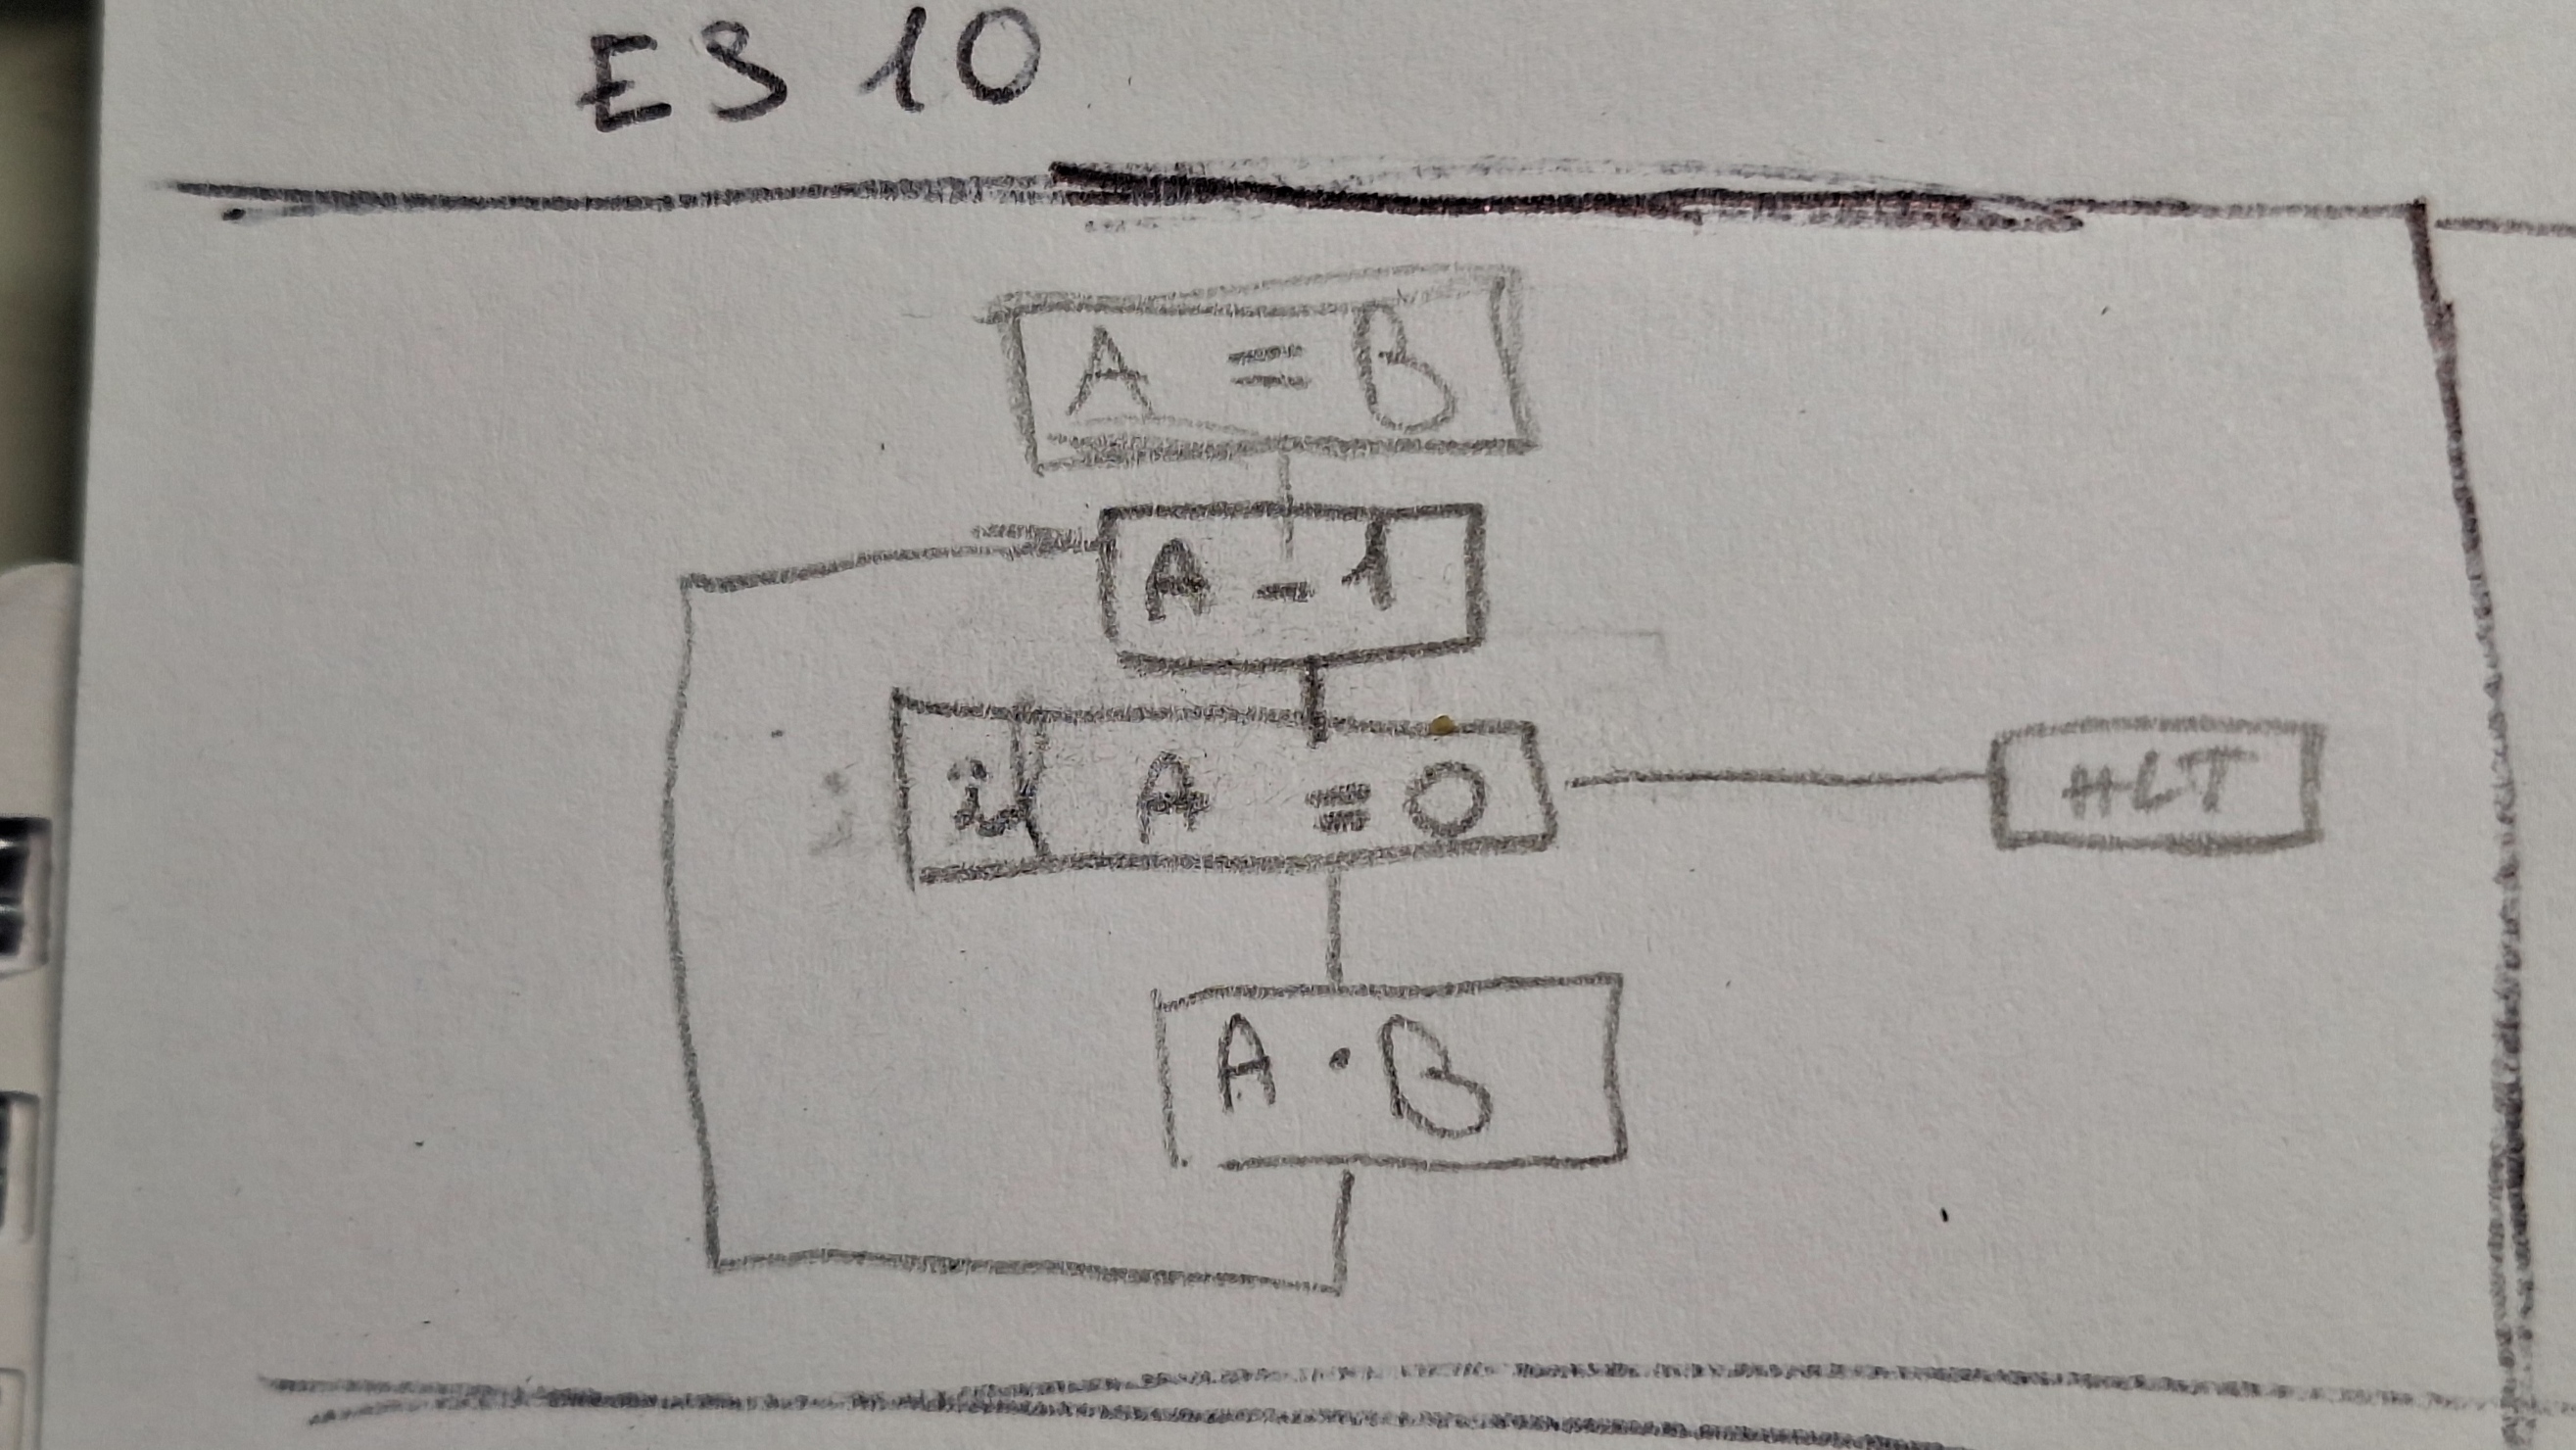 ES 10
A = B
A - 1
A = 0
HLT
A · B